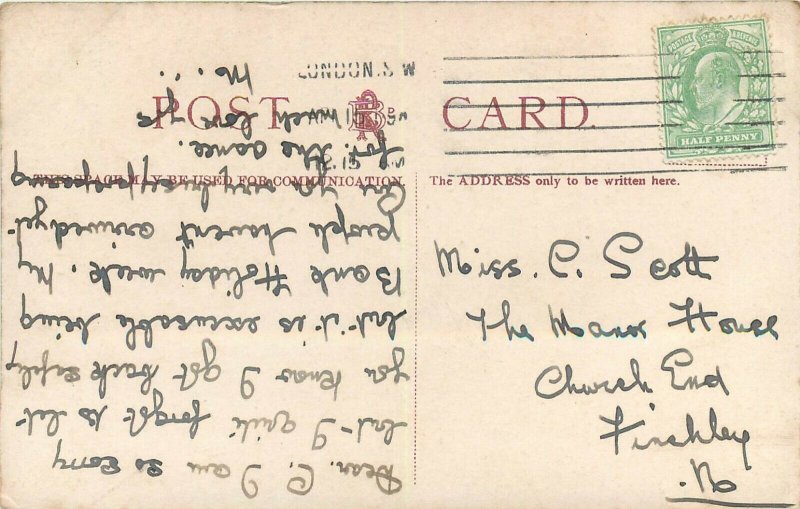 POST CARD.
THIS SPACE MAY BE USED FOR COMMUNICATION.
The ADDRESS only to be written here.
LONDON.S.W
POSTAGE & REVENUE
HALF PENNY
Miss. C. Scott
The Manor House
Church End
Finchley
.N
Dear. C. I am so sorry
but I quite forgot to let
you know I got back safely
but it is excusable being
Bank Holiday week. My
people havent arrived yet.
Are you very busy preparing
for the dance.
Much love yrs
M...